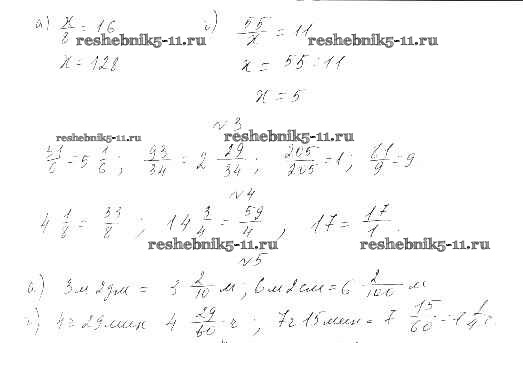 а) x/8 = 16 б) 55/x = 11
reshebnik5-11.ru reshebnik5-11.ru
x = 128 x = 55 : 11
x = 5
№3
reshebnik5-11.ru reshebnik5-11.ru
= 5 1/6 ; 93/34 = 2 29/34 ; 205/205 = 1 ; 81/9 = 9
№4
4 1/8 = 33/8 ; 14 3/4 = 59/4 ; 17 = 17/1 .
reshebnik5-11.ru reshebnik5-11.ru
№5
3м 2дм = 3 2/10 м ; 6м 2см = 6 2/100 м
4ч 29мин 4 29/60 ч ; 7ч 15мин = 7 15/60 =